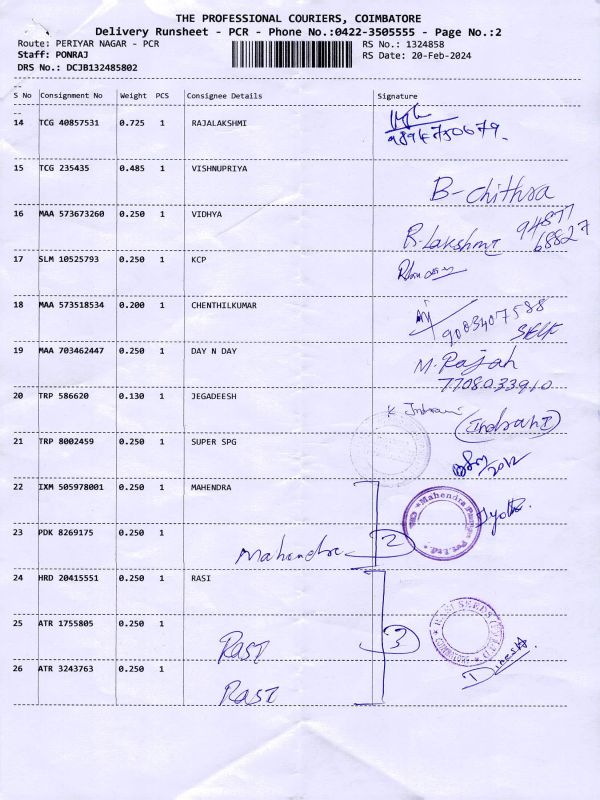 THE PROFESSIONAL COURIERS, COIMBATORE
Delivery Runsheet - PCR - Phone No.:0422-3505555 - Page No.:2
Route: PERIYAR NAGAR - PCR
RS No.: 1324858
Staff: PONRAJ
RS Date: 20-Feb-2024
DRS No.: DCJB132485802
S No Consignment No Weight PCS Consignee Details Signature
14 TCG 40857531 0.725 1 RAJALAKSHMI
9894750679.
15 TCG 235435 0.485 1 VISHNUPRIYA
B-chithra
16 MAA 573673260 0.250 1 VIDHYA
R.Lakshmi 94877
68827
17 SLM 10525793 0.250 1 KCP
18 MAA 573518534 0.200 1 CHENTHILKUMAR
9003407588
Self
19 MAA 703462447 0.250 1 DAY N DAY
M. Rajah
7708033910
20 TRP 586620 0.130 1 JEGADEESH
K Indrani
(Indrani)
21 TRP 8002459 0.250 1 SUPER SPG
22 IXM 505978001 0.250 1 MAHENDRA
Mahendra Pumps Pvt. Ltd.
23 PDK 8269175 0.250 1
Mahendra 2
24 HRD 20415551 0.250 1 RASI
25 ATR 1755805 0.250 1
RASI 3
RASI SEEDS (P) LTD
COIMBATORE
Dinesh
26 ATR 3243763 0.250 1
RASI